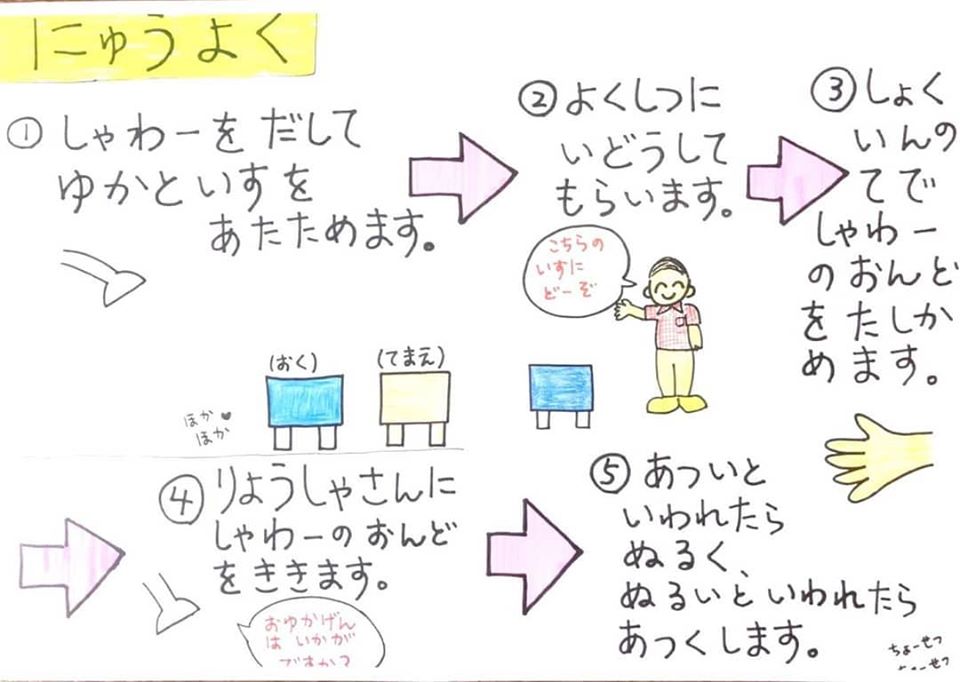 にゅうよく
① しゃわーを だして
ゆかと いすを
あたためます。
(おく)
(てまえ)
ほか♥
ほか
② よくしつに
いどうして
もらいます。
こちらの
いすに
どーぞ
③ しょく
いんの
てで
しゃわー
の おんど
を たしか
めます。
④ りょうしゃさんに
しゃわーの おんど
を ききます。
おゆかげん
は いかが
ですか?
⑤ あついと
いわれたら
ぬるく、
ぬるいと いわれたら
あつくします。
ちょーせつ
ちょーせつ